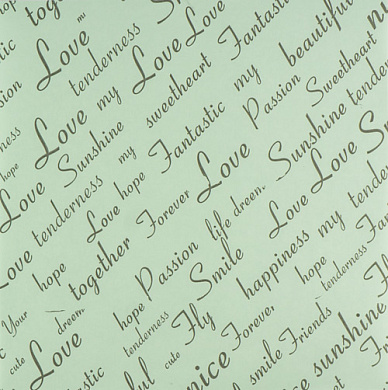 together
Love
tenderness
Love
Love
Fantastic
beautiful
Love
my
sweetheart
my
Passion
Sweetheart
tenderness
hope
Sunshine
my
Fantastic
Love
Sunshine
tender
Love
tenderness
Love
hope
Forever
life
dream.
Love
Love
Love
hope
together
Passion
Smile
happiness
my
tenderness
Your
dream.
hope
tenderness
Fly
Forever,
hope
tenderness
cute
Love
cute
nice
smile
Friends
sunshine